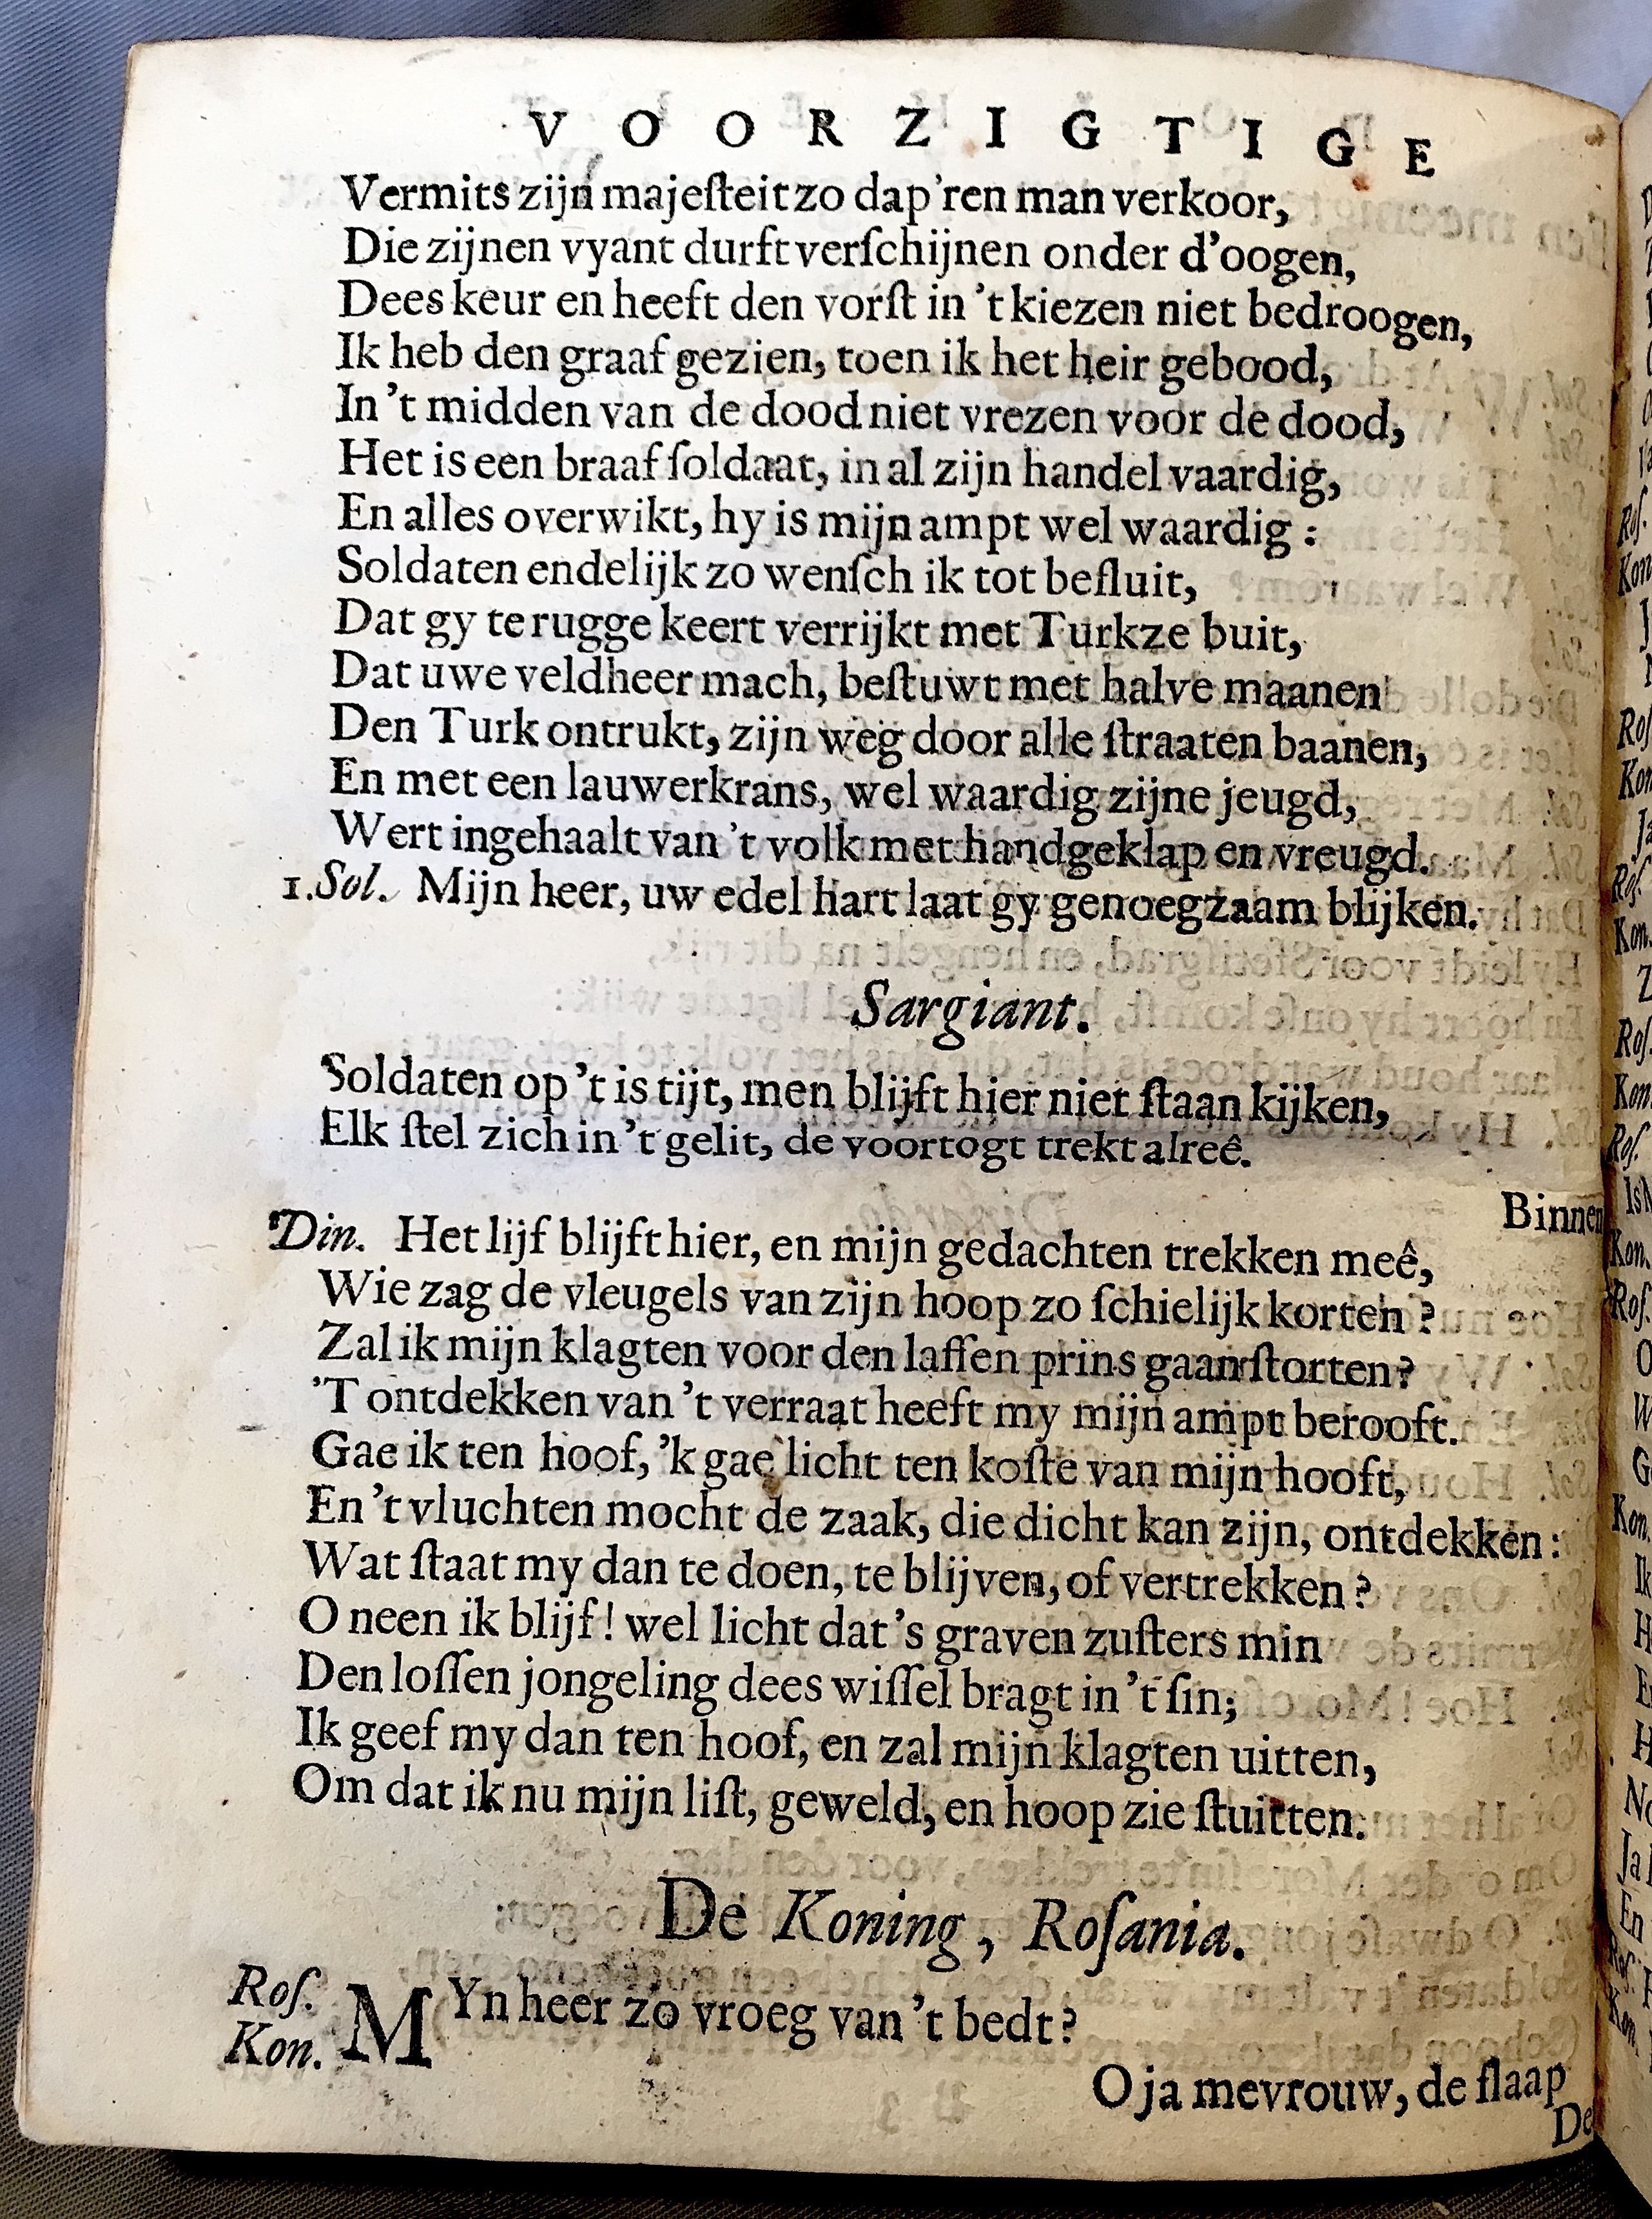 VOORZIGTIGE
Vermits zijn majeſteit zo dap'ren man verkoor,
Die zijnen vyant durft verſchijnen onder d'oogen,
Dees keur en heeft den vorſt in 't kiezen niet bedroogen,
Ik heb den graaf gezien, toen ik het heir gebood,
In 't midden van de dood niet vrezen voor de dood,
Het is een braaf ſoldaat, in al zijn handel vaardig,
En alles overwikt, hy is mijn ampt wel waardig:
Soldaten endelijk zo wenſch ik tot beſluit,
Dat gy te rugge keert verrijkt met Turkze buit,
Dat uwe veldheer mach, beſtuwt met halve maanen
Den Turk ontrukt, zijn weg door alle ſtraaten baanen,
En met een lauwerkrans, wel waardig zijne jeugd,
Wert ingehaalt van 't volk met handgeklap en vreugd.
1.Sol. Mijn heer, uw edel hart laat gy genoegzaam blijken.
Sargiant.
Soldaten op 't is tijt, men blijft hier niet ſtaan kijken,
Elk ſtel zich in 't gelit, de voortogt trekt alreê.
Binnen
Din. Het lijf blijft hier, en mijn gedachten trekken meê,
Wie zag de vleugels van zijn hoop zo ſchielijk korten?
Zal ik mijn klagten voor den laffen prins gaan ſtorten?
'T ontdekken van 't verraat heeft my mijn ampt berooft.
Gae ik ten hoof, 'k gae licht ten koſte van mijn hooft,
En 't vluchten mocht de zaak, die dicht kan zijn, ontdekken:
Wat ſtaat my dan te doen, te blijven, of vertrekken?
O neen ik blijf! wel licht dat 's graven zuſters min
Den loſſen jongeling dees wiſſel bragt in 't ſin;
Ik geef my dan ten hoof, en zal mijn klagten uitten,
Om dat ik nu mijn liſt, geweld, en hoop zie ſtuitten.
De Koning, Roſania.
Roſ. MYn heer zo vroeg van 't bedt?
Kon. O ja mevrouw, de ſlaap
De